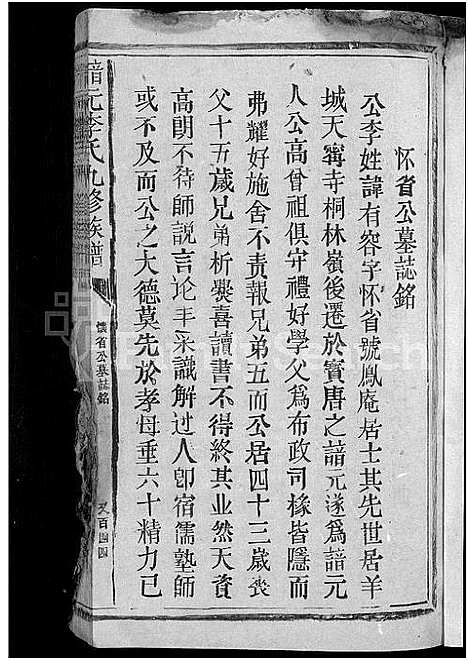 怀省公墓誌銘
公李姓諱有容字怀省號鳳庵居士其先世居羊
城天寗寺桐林嶺後遷於賓唐之諳元遂爲諳元
人公高曾祖俱守禮好學父爲布政司椽皆隱而
弗耀好施舍不责報兄弟五而公居四十三歲丧
父十五歲兄弟析爨喜讀書不得終其业然天資
高朗不待師說言论丰采識解过人卽宿儒塾師
或不及而公之大德莫先於孝母垂六十精力已
諳元李氏九修族譜
懷省公墓誌銘
又百四四